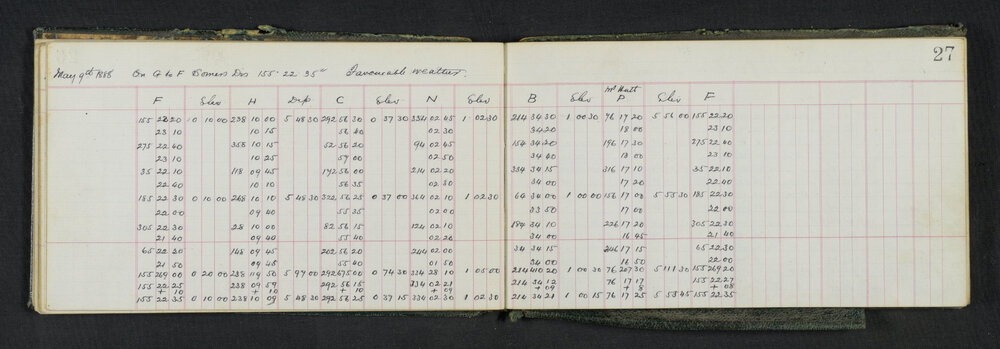 27
May 9th 1888 On G to F Domers Dos 155° 22 35" Favourable weather.
Mt Hutt
F Elev H Dip C Elev N Elev B Elev P Elev F
155 22 20 0 10 00 238 10 00 5 48 30 292 56 30 0 37 30 334 02 45 1 02 30 214 34 30 1 00 30 76 17 20 5 56 00 155 22 20
23 10 10 15 56 40 02 30 34 20 18 00 23 10
275 22 40 358 10 15 52 56 20 94 02 45 154 34 20 196 17 30 275 22 40
23 10 10 25 57 00 02 50 34 40 18 00 23 10
35 22 10 118 09 45 172 56 00 214 02 20 334 34 15 316 17 10 35 22 10
22 40 10 10 56 35 02 30 34 00 17 20 22 40
185 22 30 0 10 00 268 10 10 5 48 30 322 56 25 0 37 00 364 02 10 1 02 30 64 34 00 1 00 00 156 17 00 5 55 30 185 22 30
22 00 09 40 55 35 02 00 33 50 17 00 22 00
305 22 30 28 10 00 82 56 15 124 02 10 184 34 10 226 17 20 305 22 30
21 40 09 40 55 40 02 20 34 00 16 45 21 40
65 22 20 148 09 45 202 56 20 244 02 00 34 34 15 246 17 15 65 22 30
21 50 09 45 55 40 01 50 34 00 16 50 22 00
155 269 00 0 20 00 238 119 50 5 97 00 292 675 00 0 74 30 334 28 10 1 05 00 214 410 20 1 00 30 76 207 30 5 111 30 155 269 20
155 22 25 238 09 59 292 56 15 334 02 21 214 34 12 76 17 17 155 22 27
+ 10 + 10 + 10 + 09 + 09 + 8 + 08
155 22 35 0 10 00 238 10 09 5 48 30 292 56 25 0 37 15 334 02 30 1 02 30 214 34 21 1 00 15 76 17 25 5 55 45 155 22 35